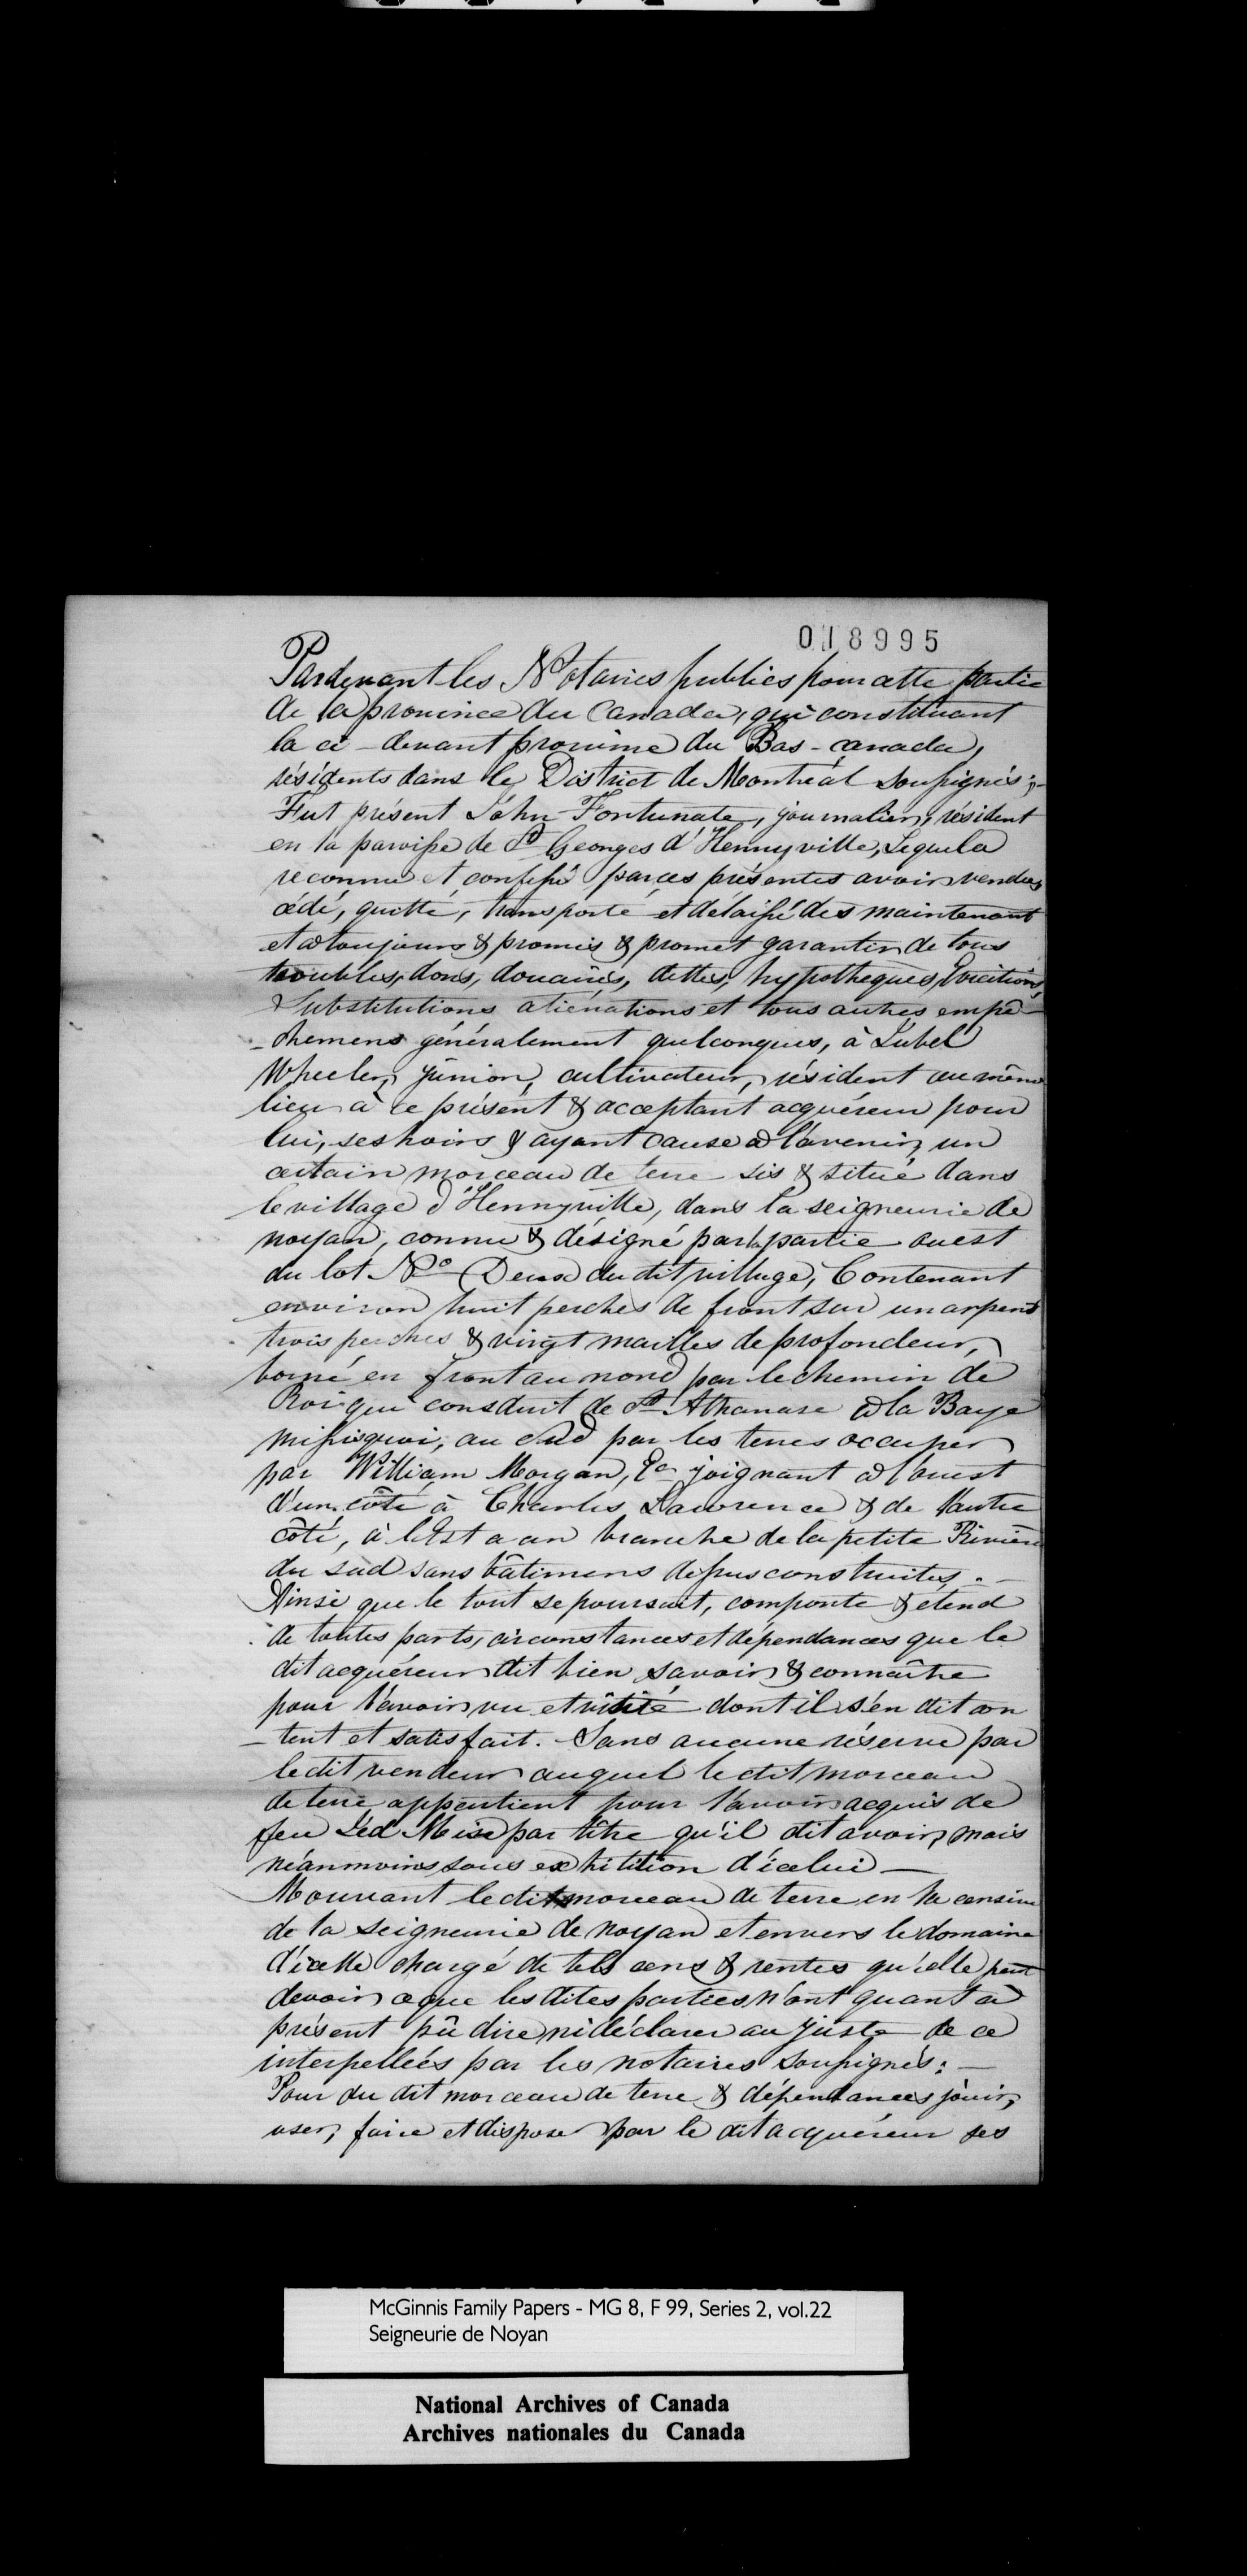 018995
Pardevant les Notaires publics pour cette partie
de la province du Canada, qui constituant
la ci-devant province du Bas-canada,
résidents dans le District de Montréal soussignés;-
Fut présent John Fortunate, journalier, résident
en la paroisse de St Georges d'Henryville, Lequel a
reconnu et confessé par ces présentes avoir vendu,
cédé, quitté, transporté et délaissé dès maintenant
et à toujours & promis & promet garantir de tous
troubles, dons, douaires, dettes, hypothèques, Evictions,
Substitutions aliénations et tous autres empê-
-chemens généralement quelconques, à
Wheeler, junior, cultivateur, résident au même
lieu à ce présent & acceptant acquéreur pour
lui, ses hoirs & ayant cause à l'avenir, un
certain morceau de terre sis & situé dans
le village d'Henryville, dans la seigneurie de
noyan, connu & désigné par la partie ouest
du lot No Deux du dit village, Contenant
environ huit perches de front sur un arpent
trois perches & vingt mailles de profondeur,
borné en front au nord par le chemin de
Roi qui conduit de St Athanase à la Baye
missisquoi, au Sud par les terres occuper
par William Morgan, joignant à l'ouest
d'un côté à Charles Lawrence & de l'autre
côté, à l'Est a un branche de la petite Rivière
du sud sans bâtimens dessus construites.-
Ainsi que le tout se poursuit, comporte & etend
de toutes parts, circonstances et dépendances que le
dit acquéreur dit bien savoir & connaître
pour l'avoir vu et visité dont il s'en dit con
-tent et satisfait. - Sans aucune réserve par
le dit vendeur auquel le dit morceau
de terre appartient pour l'avoir acquis de
feu par titre qu'il dit avoir, mais
néanmoins sans exhibition d'icelui -
Mouvant le dit morceau de terre en la censive
de la seigneurie de noyan et envers le domaine
d'icelle chargé de tels cens & rentes qu'elle peut
devoir ce que les dites parties n'ont quant à
présent pû dire ni déclarer au juste de ce
interpellées par les notaires soussignés: -
Pour du dit morceau de terre & dépendances jouir,
user, faire et disposer par le dit acquéreur ses
McGinnis Family Papers - MG 8, F 99, Series 2, vol.22
Seigneurie de Noyan
National Archives of Canada
Archives nationales du Canada